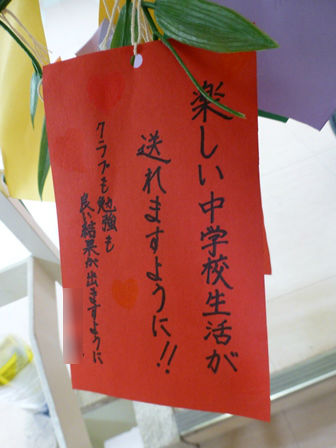 楽しい中学校生活が
送れますように!!
クラブも勉強も
良い結果が出ますように